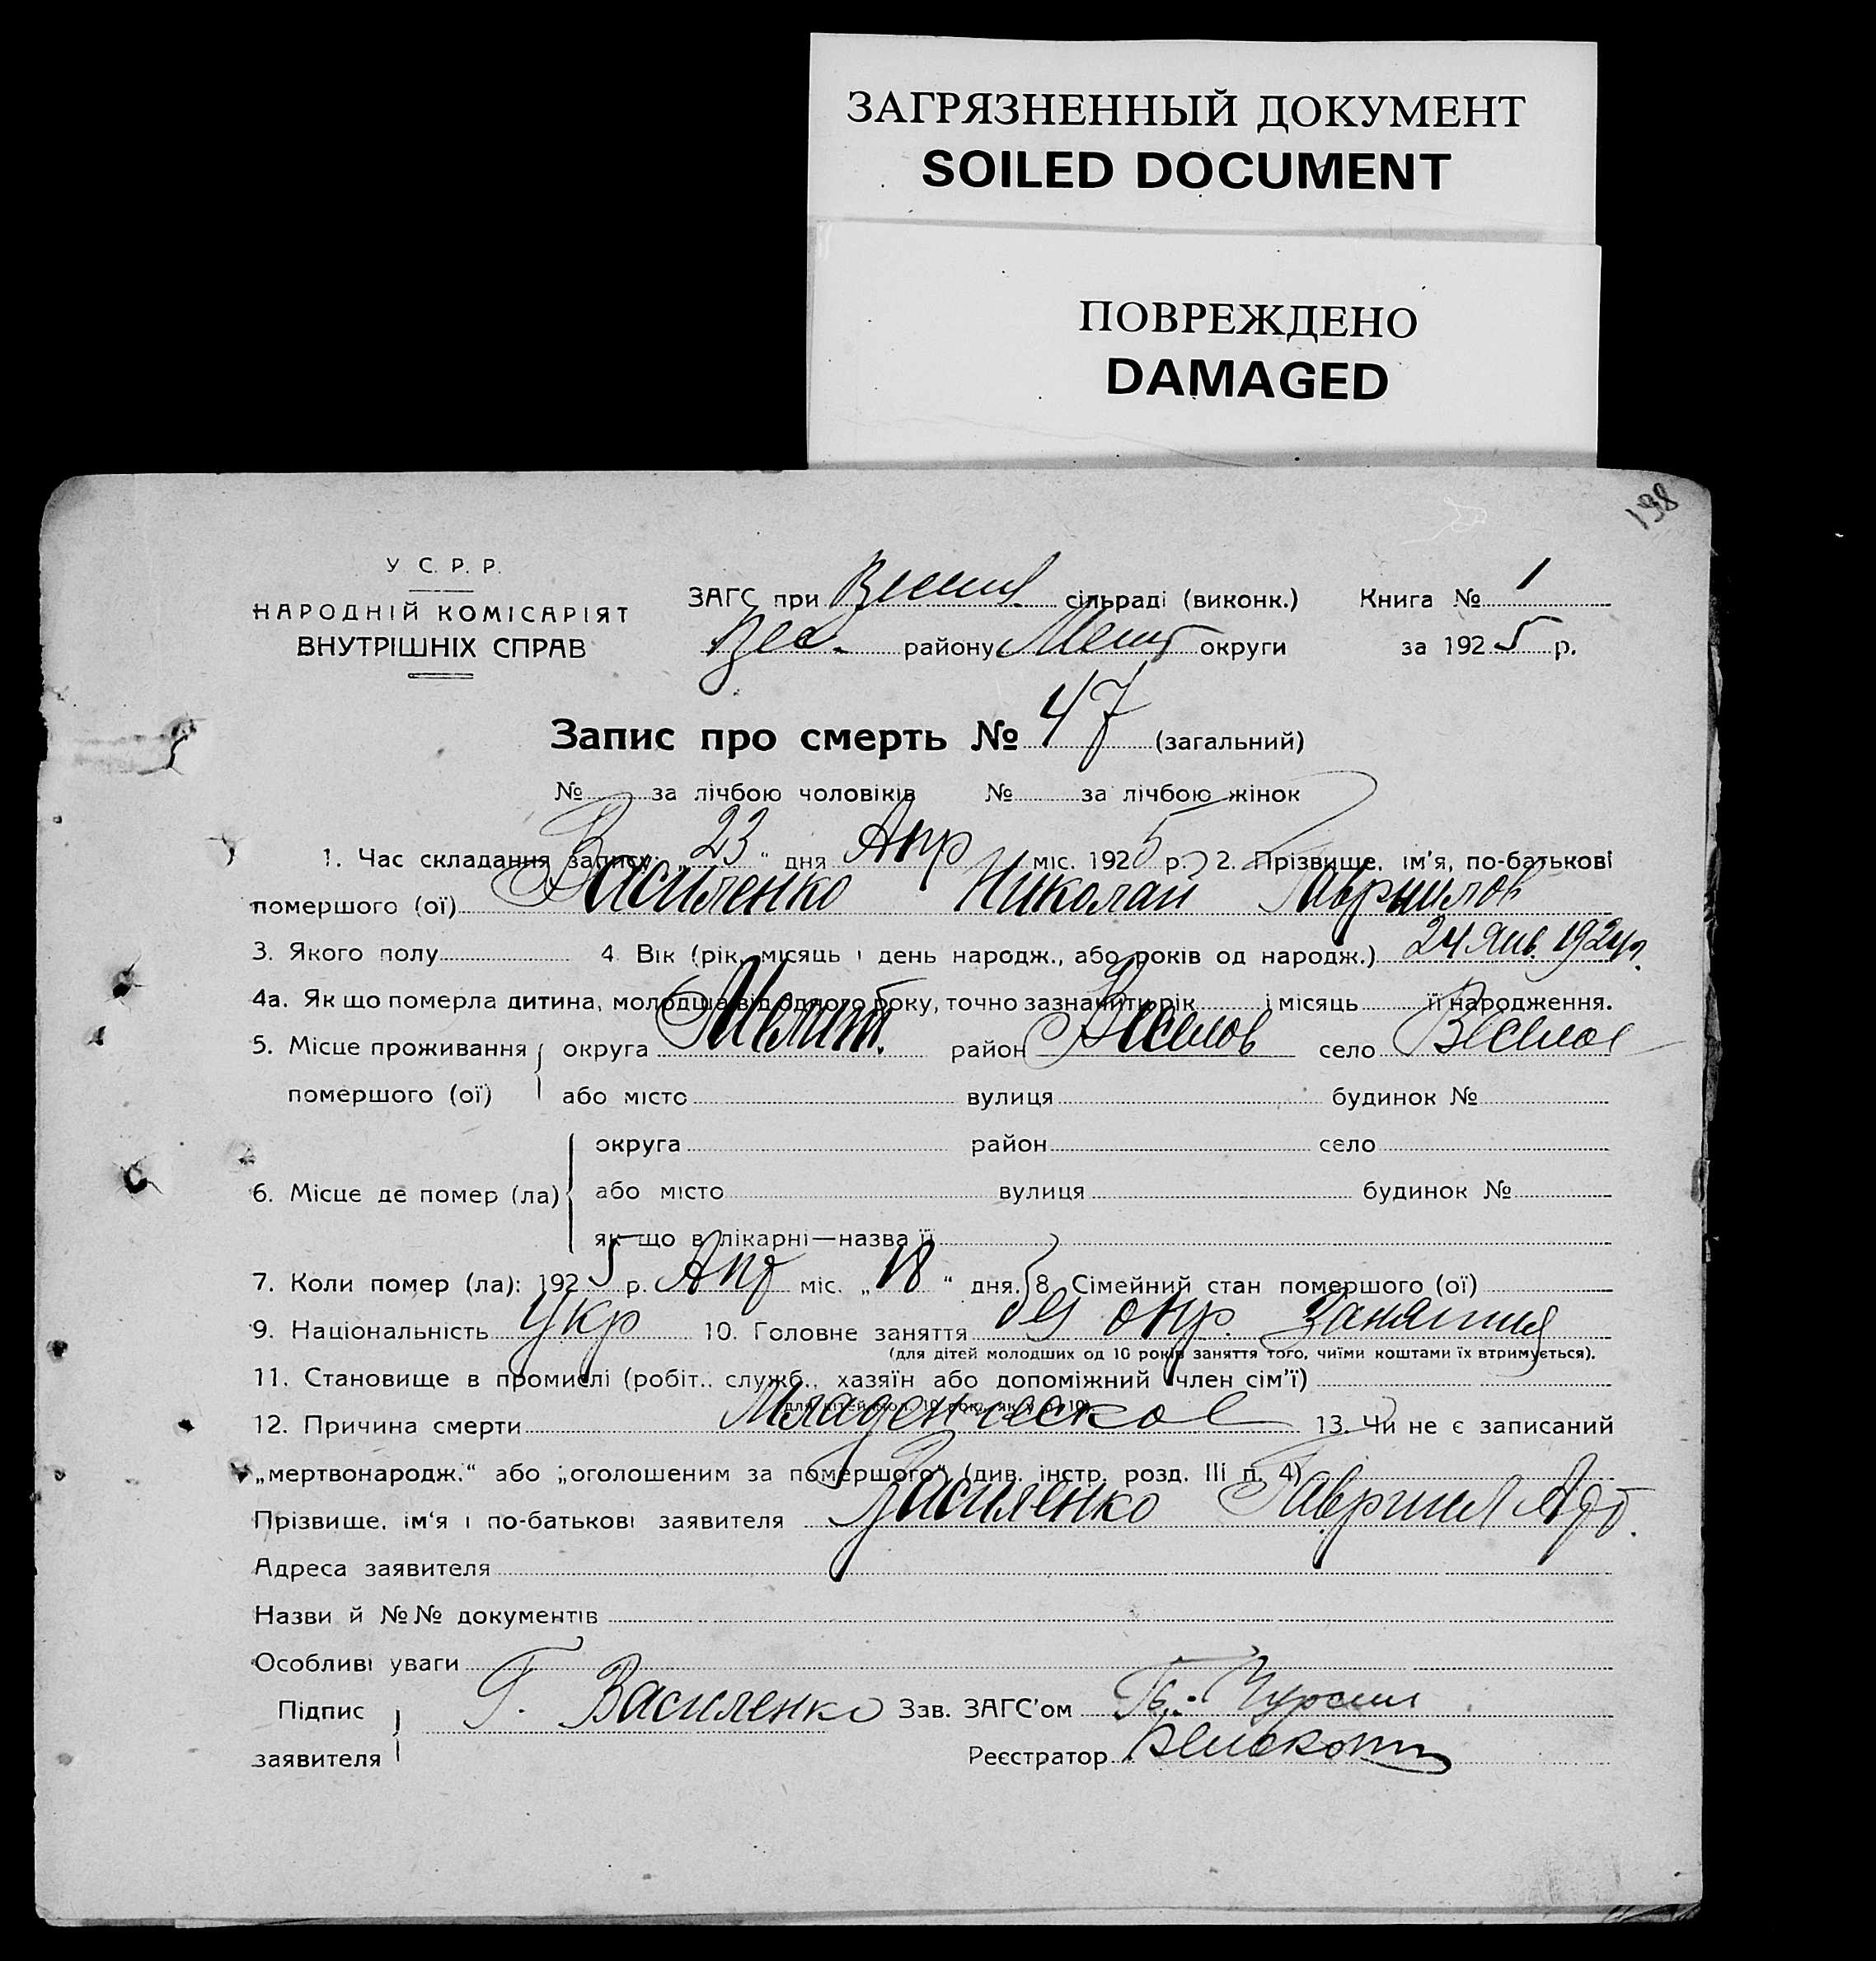 ЗАГРЯЗНЕННЫЙ ДОКУМЕНТ
SOILED DOCUMENT
ПОВРЕЖДЕНО
DAMAGED
198
У С. Р. Р.
НАРОДНІЙ КОМІСАРІЯТ
ВНУТРІШНІХ СПРАВ
ЗАГС при сільраді (виконк.) Книга № 1
Вес. району Мелит округи за 1925 р.
Запис про смерть № 47 (загальний)
№ за лічбою чоловіків № за лічбою жінок
1. Час складання запису: „23“ дня Апр міс. 1925 р. 2. Прізвище, ім'я, по-батькові
помершого (ої) Василенко Николай Гаврилов
3. Якого полу 4. Вік (рік, місяць і день народж., або років од народж.) 24 Янв. 1924 г.
4а. Як що померла дитина, молодша від одного року, точно зазначити рік і місяць її народження.
5. Місце проживання округа Мелит. район Веселов село Веселое
помершого (ої) або місто вулиця будинок №
округа район село
6. Місце де помер (ла) або місто вулиця будинок №
як що в лікарні—назва її
7. Коли помер (ла): 1925 р. Апр міс. „18“ дня. 8. Сімейний стан помершого (ої)
9. Національність Укр 10. Головне заняття без опр. занятия
(для дітей молодших од 10 років заняття того, чиїми коштами їх втримується).
11. Становище в промислі (робіт., служб., хазяїн або допоміжний член сім'ї)
12. Причина смерти Младенческое 13. Чи не є записаний
„мертвонародж.“ або „оголошеним за помершого“ (див. інстр. розд. III п. 4)
Прізвище, ім'я і по-батькові заявителя Василенко Гавриил
Адреса заявителя
Назви й №№ документів
Особливі уваги
Підпис Г. Василенко Зав. ЗАГС'ом
заявителя Реєстратор